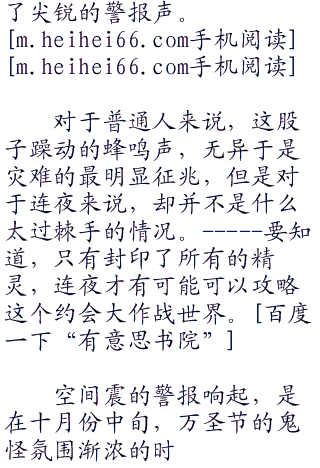 了尖锐的警报声。
[m.heihei66.com手机阅读]
[m.heihei66.com手机阅读]
对于普通人来说，这股
子躁动的蜂鸣声，无异于是
灾难的最明显征兆，但是对
于连夜来说，却并不是什么
太过棘手的情况。-----要知
道，只有封印了所有的精
灵，连夜才有可能可以攻略
这个约会大作战世界。[百度
一下“有意思书院”]
空间震的警报响起，是
在十月份中旬，万圣节的鬼
怪氛围渐浓的时